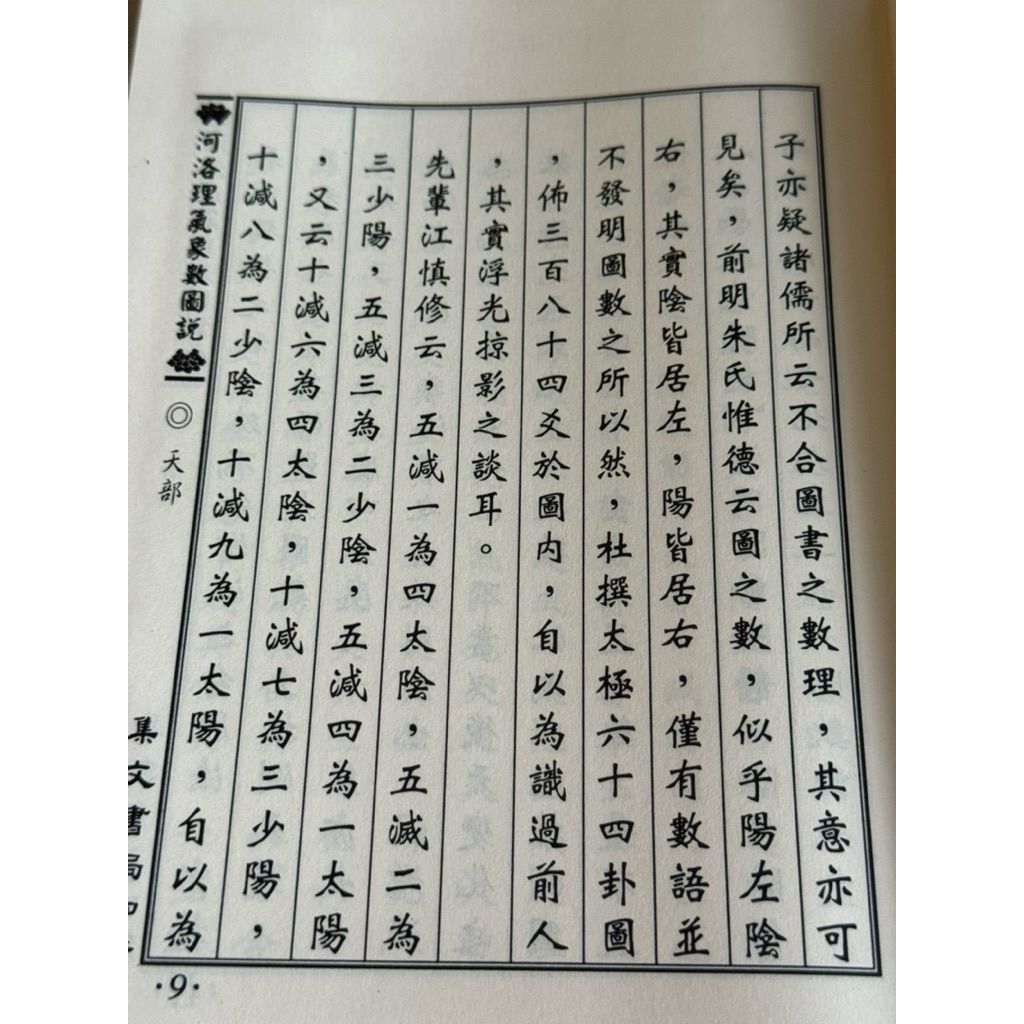 子亦疑諸儒所云不合圖書之數理，其意亦可
見矣，前明朱氏惟德云圖之數，似乎陽左陰
右，其實陰皆居左，陽皆居右，僅有數語並
不發明圖數之所以然，杜撰太極六十四卦圖
，佈三百八十四爻於圖內，自以為識過前人
，其實浮光掠影之談耳。
先輩江慎修云，五減一為四太陰，五減二為
三少陽，五減三為二少陰，五減四為一太陽
，又云十減六為四太陰，十減七為三少陽，
十減八為二少陰，十減九為一太陽，自以為
河洛理氣象數圖説
◎ 天部
集文書局
·9·